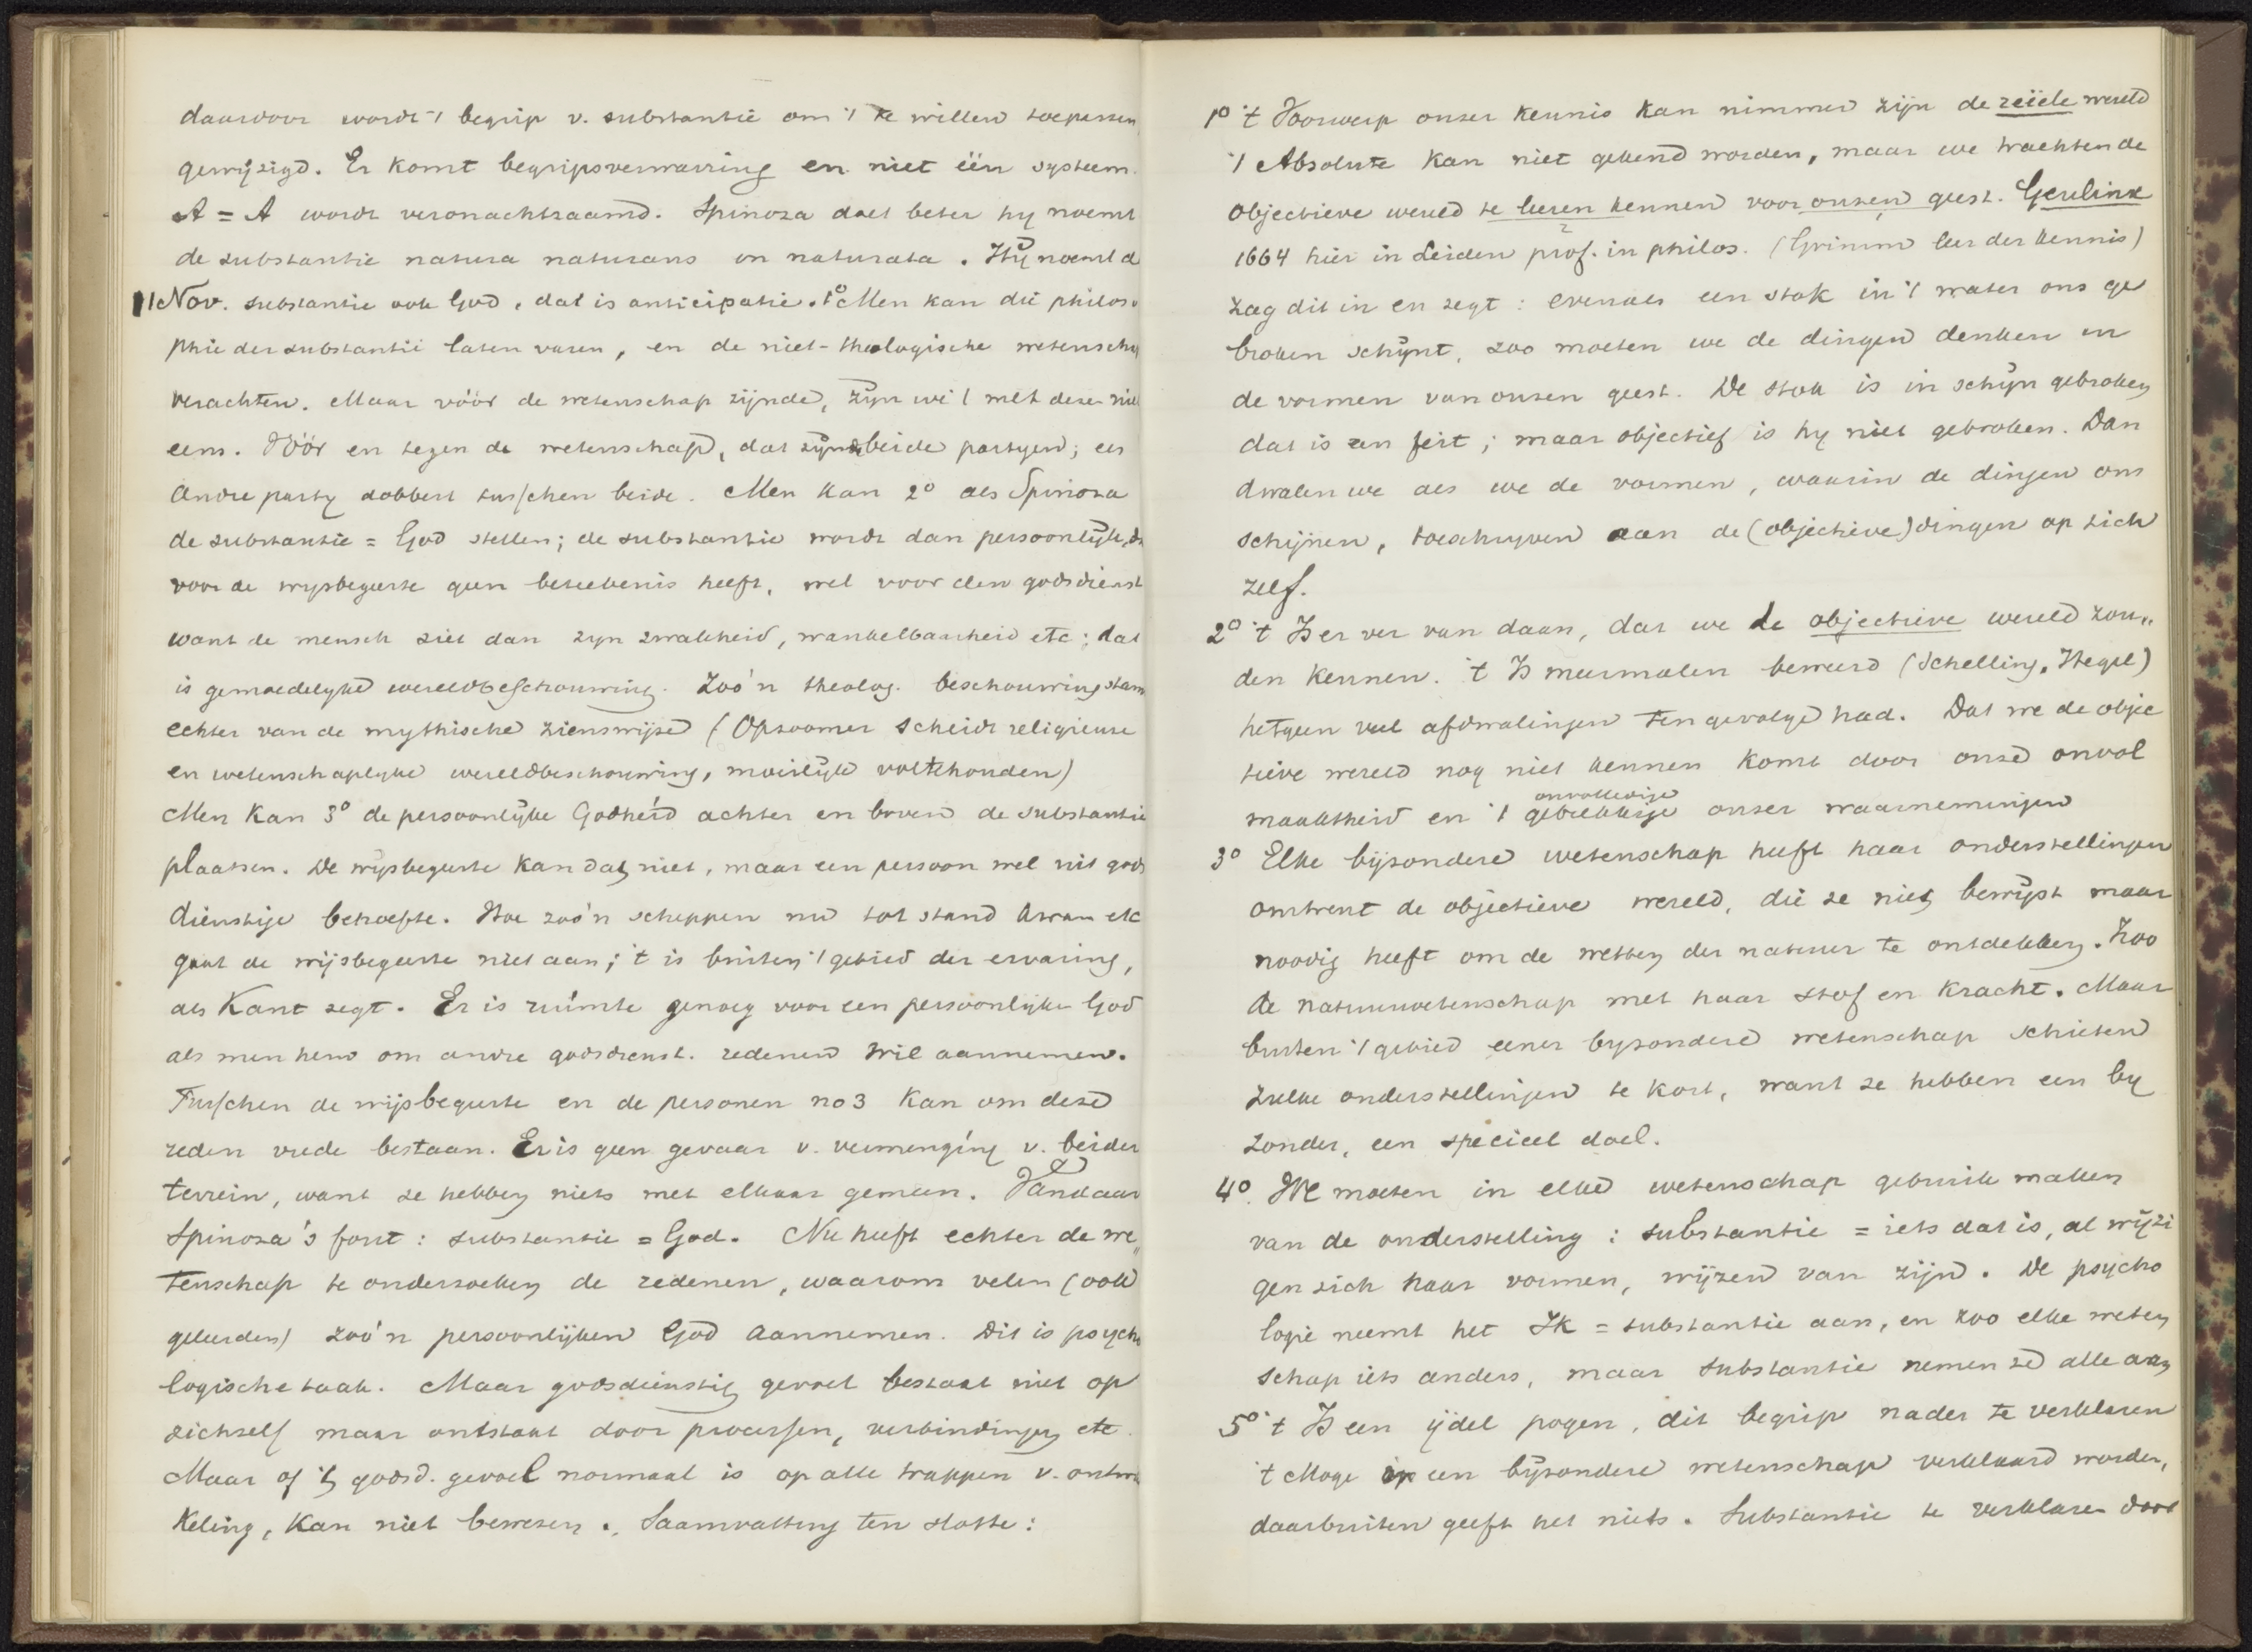 daardoor wordt 't begrip v. substantie om 't te willen toepassen
gewijzigd. Er komt begripsverwarring en niet één systeem.
A = A wordt veronachtzaamd. Spinoza doet beter hy noemt
de substantie natura naturans en naturata. Hij noemt d
11 Nov. substantie ook God, dat is anticipatie. 1o Men kan die philoso
phie der substantie laten varen, en de niet-theologische wetenschap
verachten. Maar vóór de wetenschap zijnde, zijn we 't met deze niet
eens. Vóór en tegen de wetenschap, dat zijn beide partyen; een
andre party dobbert tusschen beide. Men kan 2o als Spinoza
de substantie = God stellen; de substantie wordt dan persoonlijk, dat
voor de wysbegeerte geen beteekenis heeft, wel voor den godsdienst
want de mensch ziet dan zyn zwakheid, wankelbaarheid etc; dat
is gemoedelyke wereldbeschouwing. Zoo'n theolog. beschouwing stamt
echter van de mythische zienswijze (Opzoomer scheidt religieuse
en wetenschaplyke wereldbeschouwing, moeilijk voltehouden)
Men kan 3o de persoonlijke Godheid achter en boven de substantie
plaatsen. De wijsbegeerte kan dat niet, maar een persoon wel uit gods
dienstige behoefte. Hoe zoo'n scheppen nu tot stand kwam etc
gaat de wijsbegeerte niet aan; 't is buiten 't gebied der ervaring,
als Kant zegt. Er is ruimte genoeg voor een persoonlijke God
als men hem om andre godsdienst. redenen wil aannemen.
Tusschen de wijsbegeerte en de personen no 3 kan om deze
reden vrede bestaan. Er is geen gevaar v. vermenging v. beider
terrein, want ze hebben niets met elkaar gemeen. Vandaar
Spinoza's fout: substantie = God. Nu heeft echter de we„
tenschap te onderzoeken de redenen, waarom velen (ook
geleerden) zoo'n persoonlijken God aannemen. Dit is psycho
logische taak. Maar godsdienstig gevoel bestaat niet op
zichzelf maar ontstaat door processen, verbindingen etc.
Maar of 't godsd. gevoel normaal is op alle trappen v. ontwik
keling, kan niet bewezen. Saamvatting ten slotte:
1o 't Voorwerp onzer kennis kan nimmer zijn de reëele wereld
't Absolute kan niet gekend worden, maar we trachten de
objectieve wereld te leeren kennen voor onzen geest. Geulinx
1664 hier in Leiden prof. in philos. (Grimm leer der kennis)
zag dit in en zegt: evenals een stok in 't water ons ge
broken schijnt, zoo moeten we de dingen denken in
de vormen van onzen geest. De stok is in schijn gebroken
dat is een feit; maar objectief is hy niet gebroken. Dan
dwalen we als we de vormen, waarin de dingen ons
schijnen, toeschryven aan de (objectieve) dingen op zich
zelf.
2o 't Is er ver van daan, dat we de objectieve wereld zou„
den kennen. 't Is meermalen beweerd (Schelling, Hegel)
hetgeen veel afdwalingen ten gevolge had. Dat we de objec
tieve wereld nog niet kennen komt door onze onvol
onvolledige
maaktheid en 't gebrekkige onzer waarnemingen
3o Elke bijzondere wetenschap heeft haar onderstellingen
omtrent de objectieve wereld, die ze niet bewijst maar
noodig heeft om de wetten der natuur te ontdekken. Zoo
de natuurwetenschap met haar stof en kracht. Maar
buiten 't gebied eener byzondere wetenschap schieten
zulke onderstellingen te kort, want ze hebben een by
zonder, een speciaal doel.
4o. We moeten in elke wetenschap gebruik maken
van de onderstelling: substantie = iets dat is, al wijzi
gen zich haar vormen, wijzen van zijn. De psycho
logie neemt het Ik = substantie aan, en zoo elke weten
schap iets anders, maar substantie nemen ze alle aan
5o 't Is een ijdel pogen, dit begrip nader te verklaren
't Moge in een bijzondere wetenschap verklaard worden,
daarbuiten geeft het niets. Substantie te verklaren door